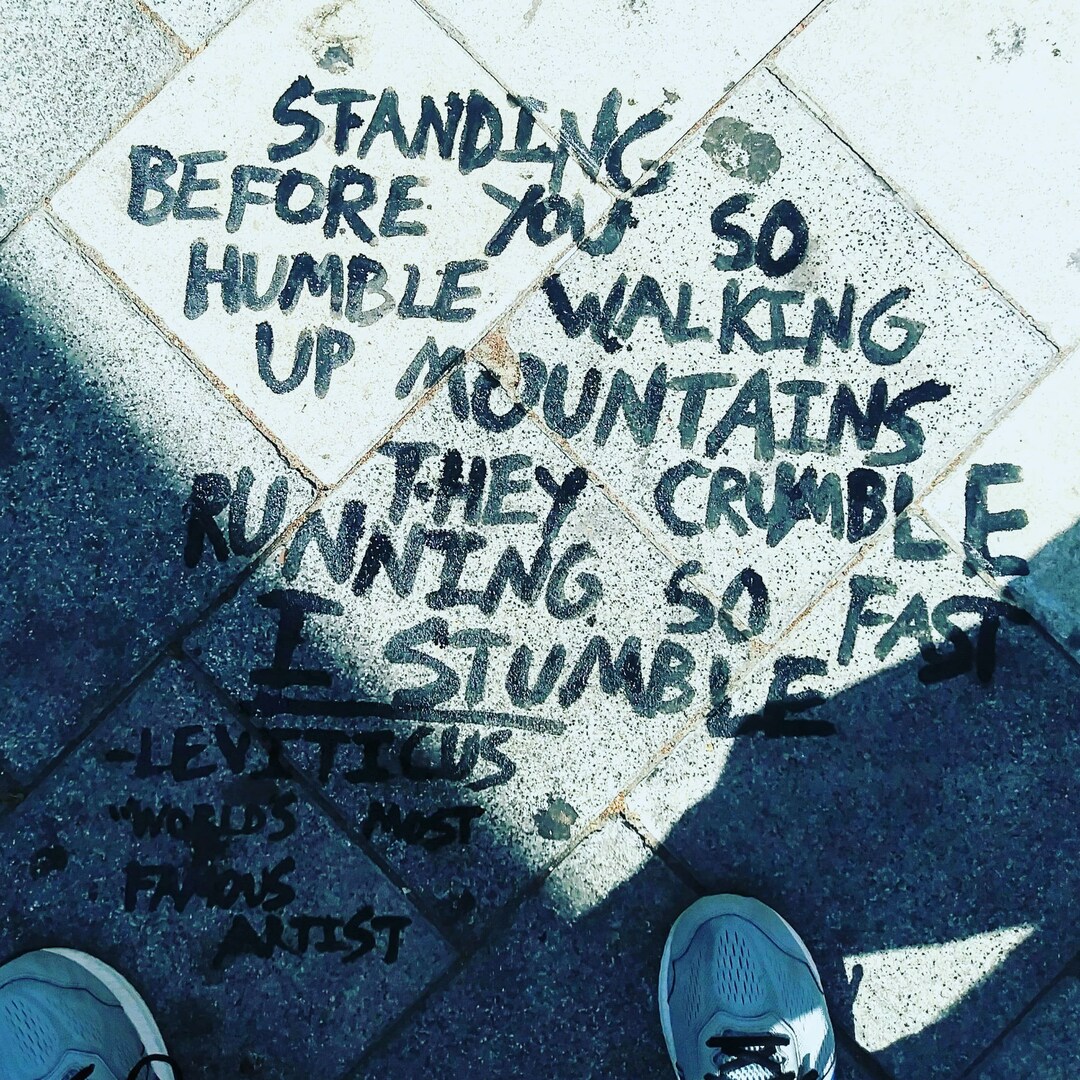 STANDING
BEFORE YOU SO
HUMBLE WALKING
UP MOUNTAINS
THEY CRUMBLE
RUNNING SO FAST
I STUMBLE
-LEVITICUS
"WORLD'S MOST
FAMOUS
ARTIST"